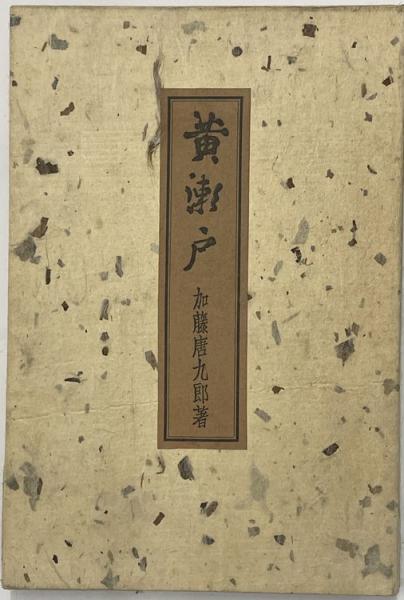 黄瀬戸
加藤唐九郎著